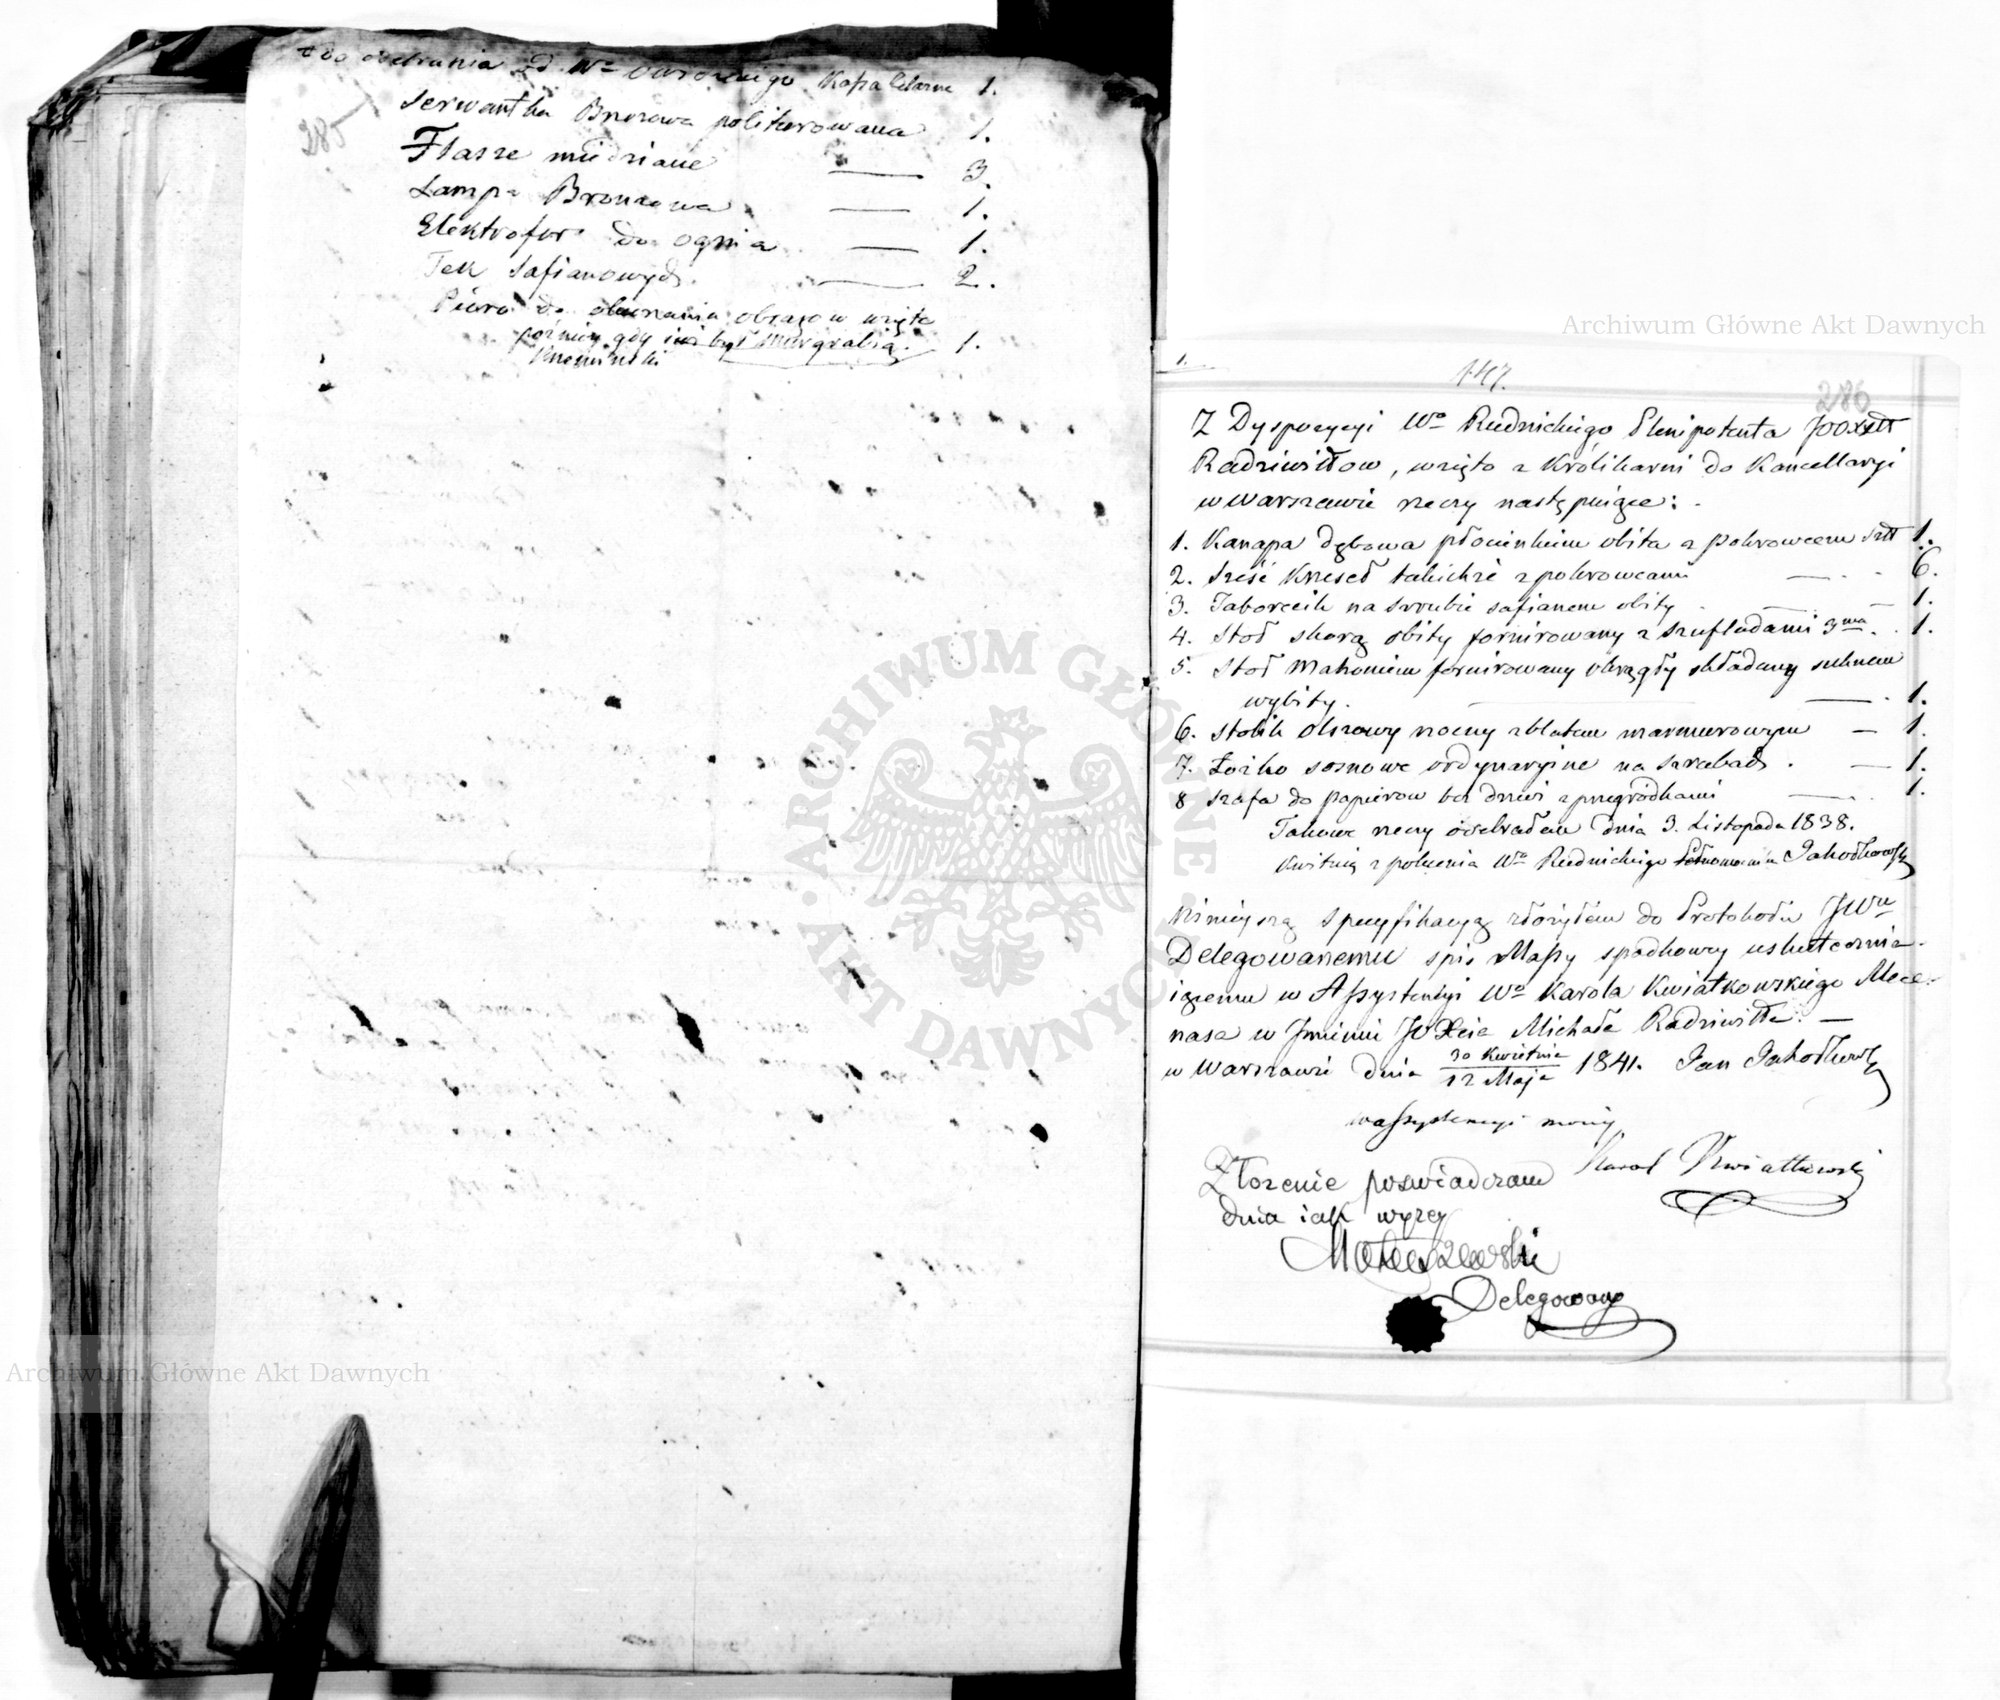 do odebrania od Wo 1.
Serwantka Brzozowa politurowana 1.
285
Flasze miedziane — 3.
Lampa Bronzowa — 1.
Elektrofor do ognia — 1.
Tek Safianowych — 2.
Pióro do obierania obrazow wzięte
pozniey gdy iuż był Murgrabią — 1.
Krzemiński
Archiwum Główne Akt Dawnych
1.
147.
286
Z Dyspozycyi Wo Rudnickiego Plenipotenta JOOXtt
Radziwiłłow, wzięto z Królikarni do Kancellaryi
w Warszawie rzeczy następuiące:
1. Kanapa dębowa płocienkiem obita z pokrowcem Szt 1.
2. Sześć Krzeseł takichże z pokrowcami — 6.
3. Taborecik na szrubie safianem obity — 1.
4. Stoł skorą obity fornirowany z szufladami 3ma 1.
5. Stoł Mahoniem fornirowany okrągły składany suknem
wybity. — 1.
6. Stolik Olszowy nocny z blatem marmurowym — 1.
7. Łożko sosnowe ordynaryine na szrubach. — 1.
8 Szafa do papierow bez drzwi z przegródkami — 1.
Takowe rzeczy odebrałem dnia 3. Listopada 1838.
Kwituię z polecenia Wo Rudnickiego Pełnomocnika Jakodkowski
Ninieyszą Specyfikacyą złożyłem do Protokołu JWu
Delegowanemu spis Massy spadkowey uskutecznia-
iącemu w Assystencyi Wo Karola Kwiatkowskiego Mece-
nasa w Imieniu JO Xcia Michała Radziwiłła. —
w Warszawie dnia 30 Kwietnia / 12 Maja 1841. Jan Jakodkowski
w assystencyi moiey
Karol Kwiatkowski
Złożenie poswiadczam
dnia iak wyżey
Mateuszewski
Delegowany
ARCHIWUM GŁÓWNE AKT DAWNYCH
Archiwum Główne Akt Dawnych